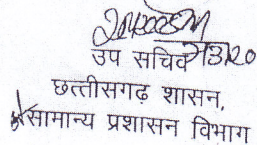 उप सचिव
छत्तीसगढ़ शासन,
सामान्य प्रशासन विभाग